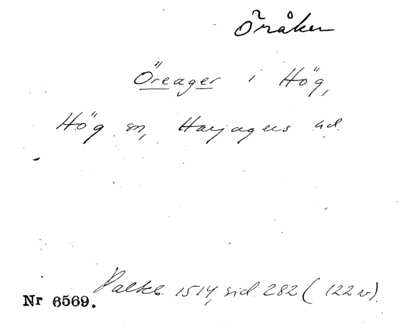 Öråker
Öreager i Hög,
Hög sn, Harjagers hd.
Palteb. 1514, sid. 282 (122 v).
Nr 6569.